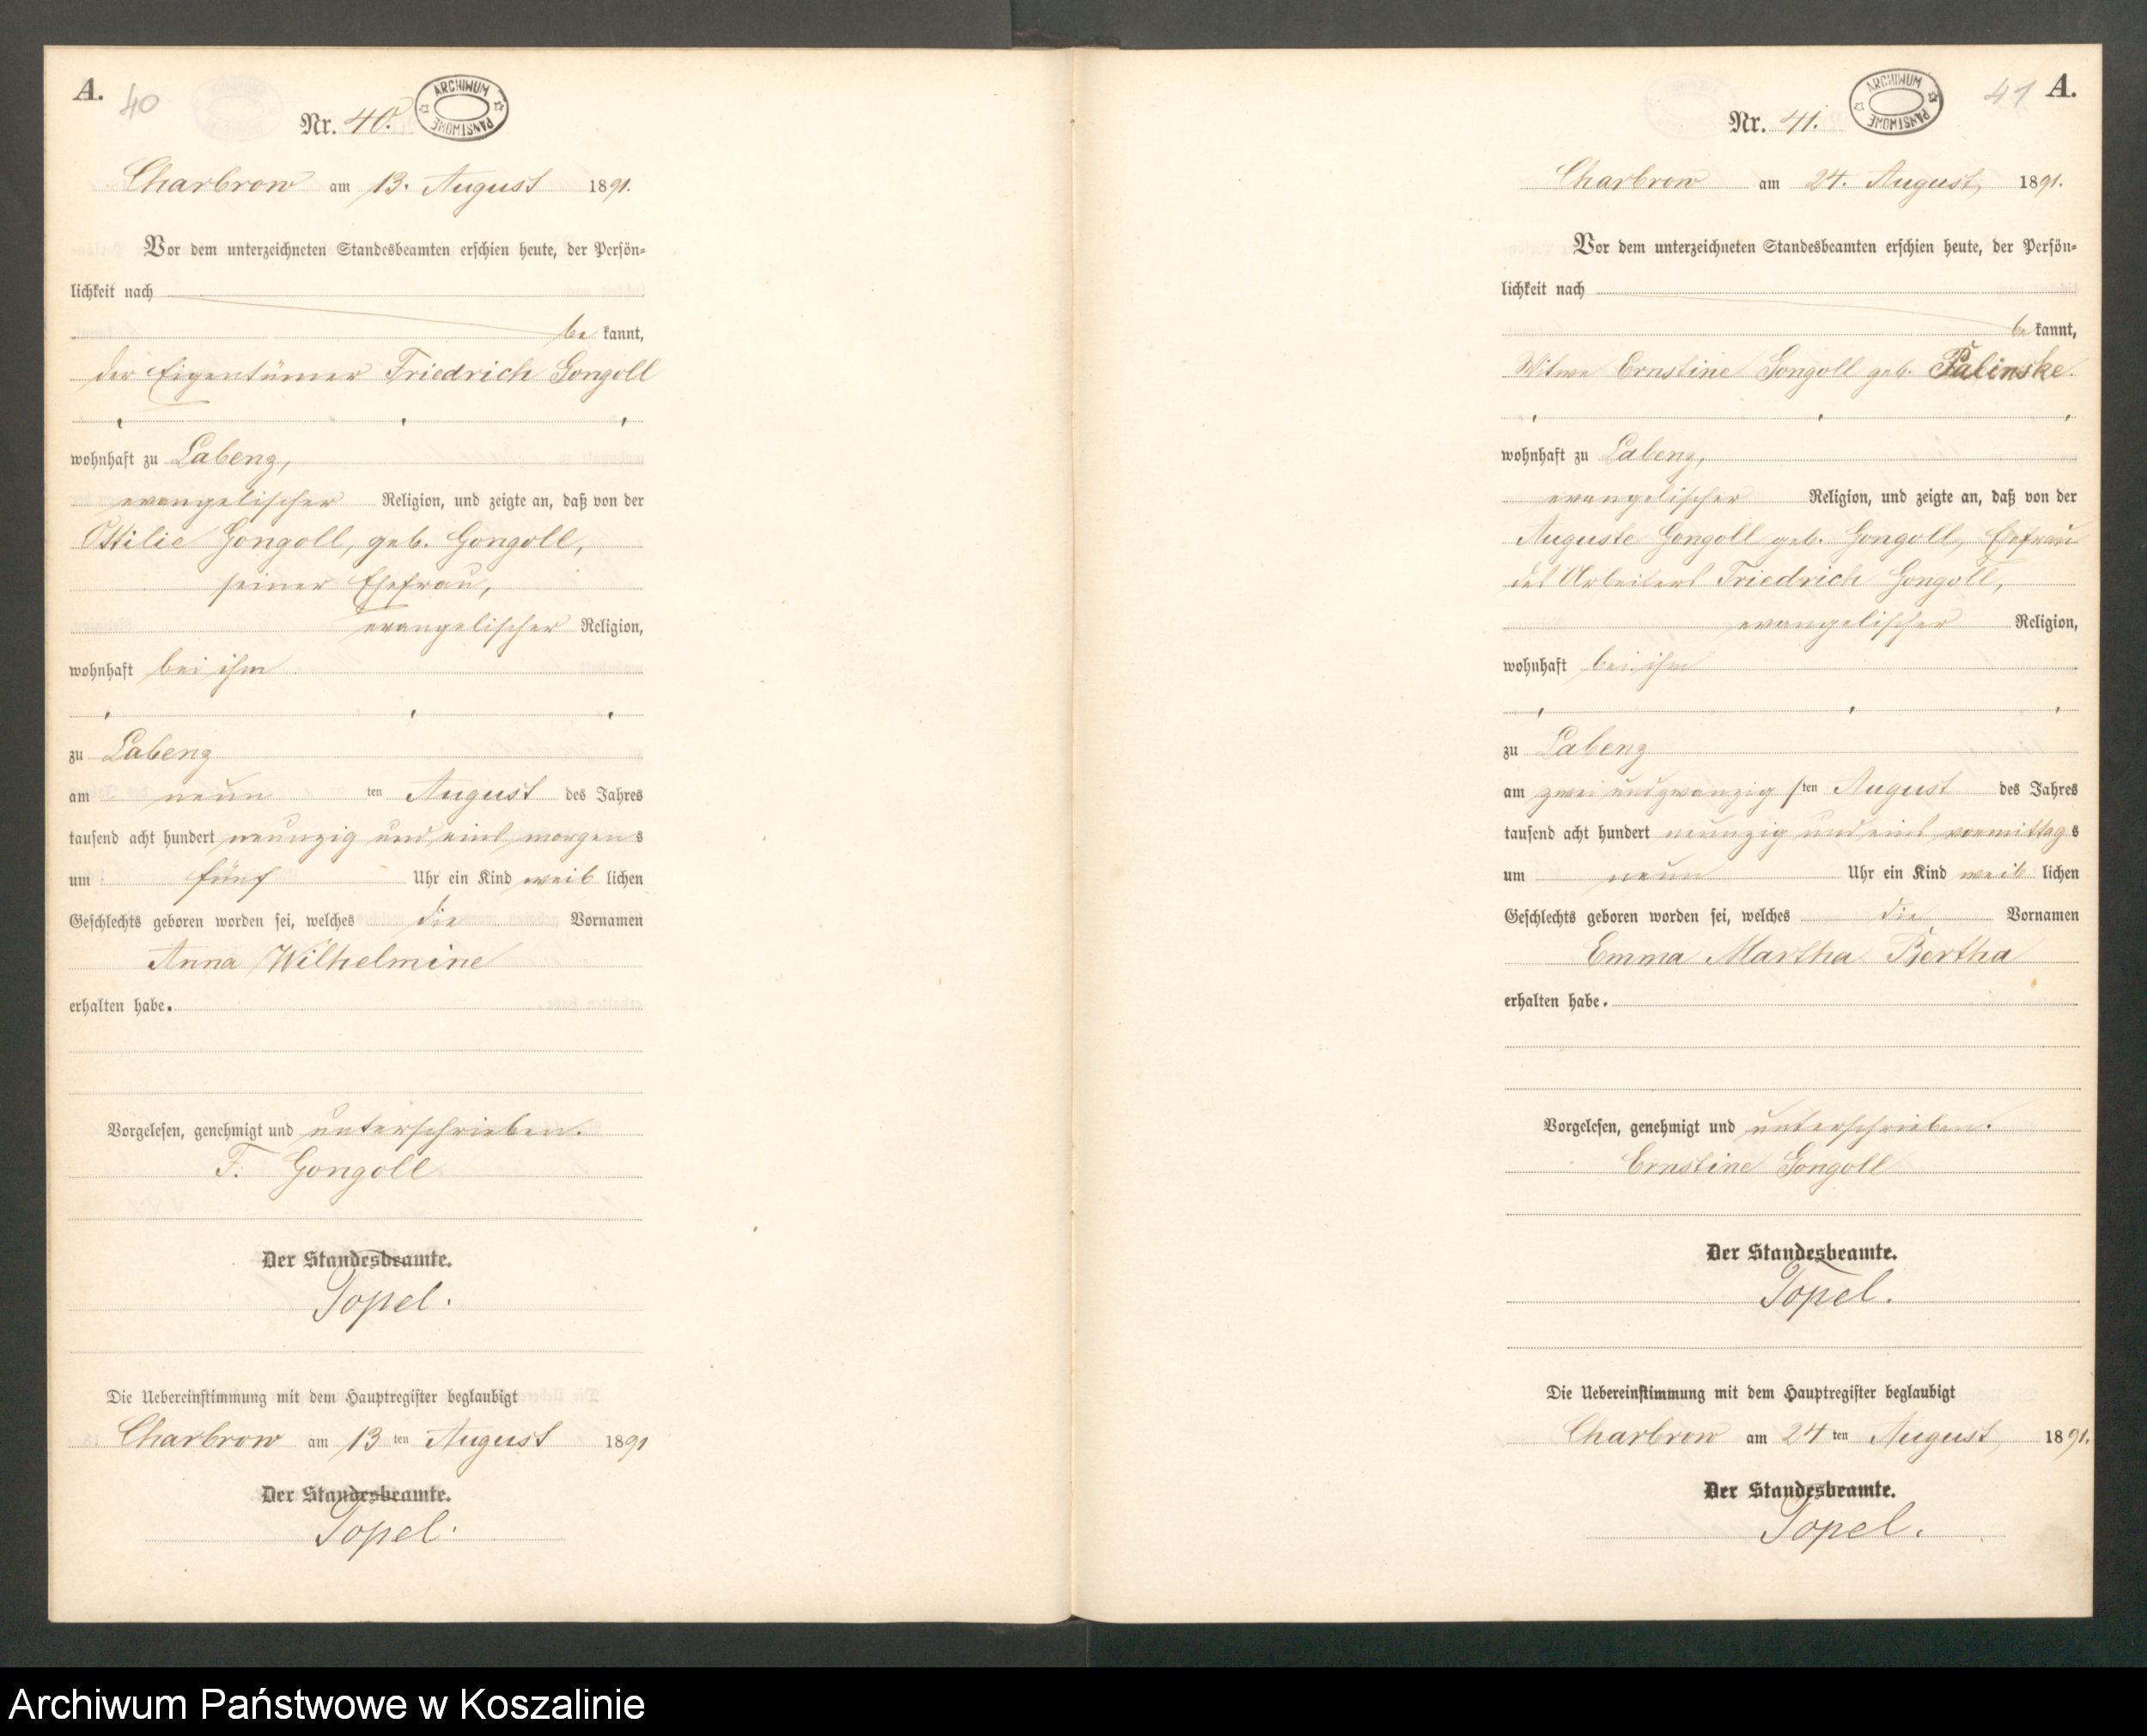 A.
40
Nr. 40.
ARCHIWUM PAŃSTWOWE
Charbrow am 13. August 1891.
Vor dem unterzeichneten Standesbeamten erschien heute, der Persön-
lichkeit nach
be kannt,
der Eigentümer Friedrich Gongoll
wohnhaft zu Labenz,
evangelischer Religion, und zeigte an, daß von der
Ottilie Gongoll, geb. Gongoll,
seiner Ehefrau,
evangelischer Religion,
wohnhaft bei ihm
zu Labenz
am neun ten August des Jahres
tausend acht hundert neunzig und eins morgens
um fünf Uhr ein Kind weib lichen
Geschlechts geboren worden sei, welches die Vornamen
Anna Wilhelmine
erhalten habe.
Vorgelesen, genehmigt und unterschrieben.
F. Gongoll
Der Standesbeamte.
Topel.
Die Uebereinstimmung mit dem Hauptregister beglaubigt
Charbrow am 13 ten August 1891
Der Standesbeamte.
Topel.
41 A.
Nr. 41.
ARCHIWUM PAŃSTWOWE
Charbrow am 24. August, 1891.
Vor dem unterzeichneten Standesbeamten erschien heute, der Persön-
lichkeit nach
be kannt,
Witwe Ernstine Gongoll geb. Palinske.
wohnhaft zu Labenz,
evangelischer Religion, und zeigte an, daß von der
Auguste Gongoll geb. Gongoll, Ehefrau
des Arbeiters Friedrich Gongoll,
evangelischer Religion,
wohnhaft bei ihm
zu Labenz
am zwei und zwanzig sten August des Jahres
tausend acht hundert neunzig und eins vormittags
um neun Uhr ein Kind weib lichen
Geschlechts geboren worden sei, welches die Vornamen
Emma Martha Bertha
erhalten habe.
Vorgelesen, genehmigt und unterschrieben.
Ernstine Gongoll
Der Standesbeamte.
Topel.
Die Uebereinstimmung mit dem Hauptregister beglaubigt
Charbrow am 24 ten August, 1891.
Der Standesbeamte.
Topel.
Archiwum Państwowe w Koszalinie